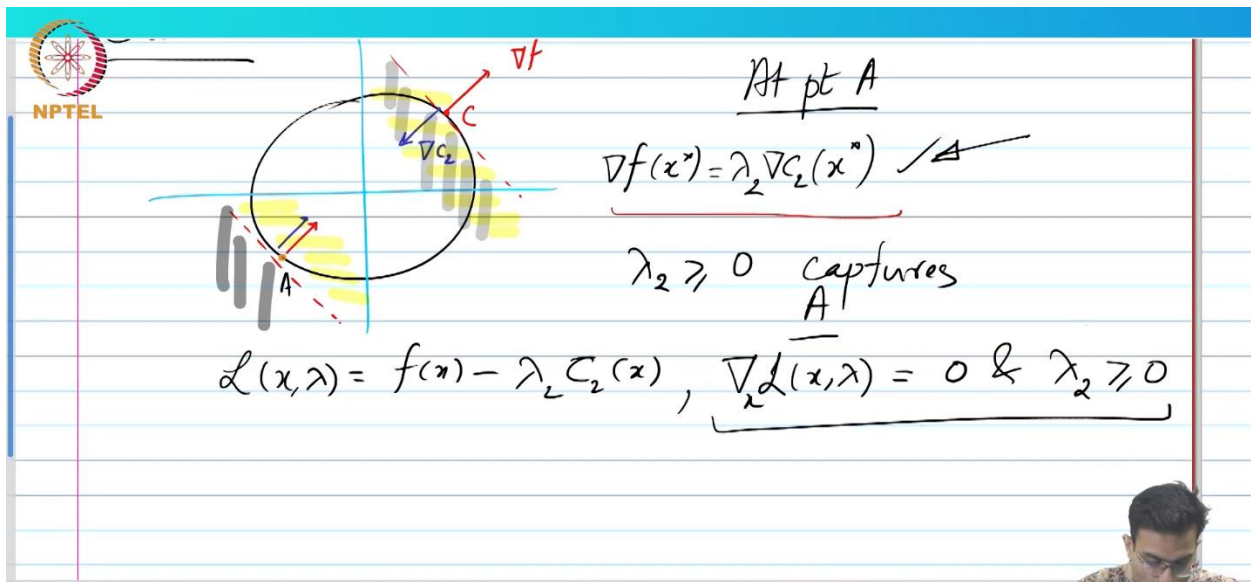 NPTEL
∇f
C
∇C₂
A
At pt A
∇f(x*) = λ₂∇C₂(x*)
λ₂ ⩾ 0 captures
A
ℒ(x,λ) = f(x) − λ₂C₂(x), ∇ₓℒ(x,λ) = 0 & λ₂ ⩾ 0